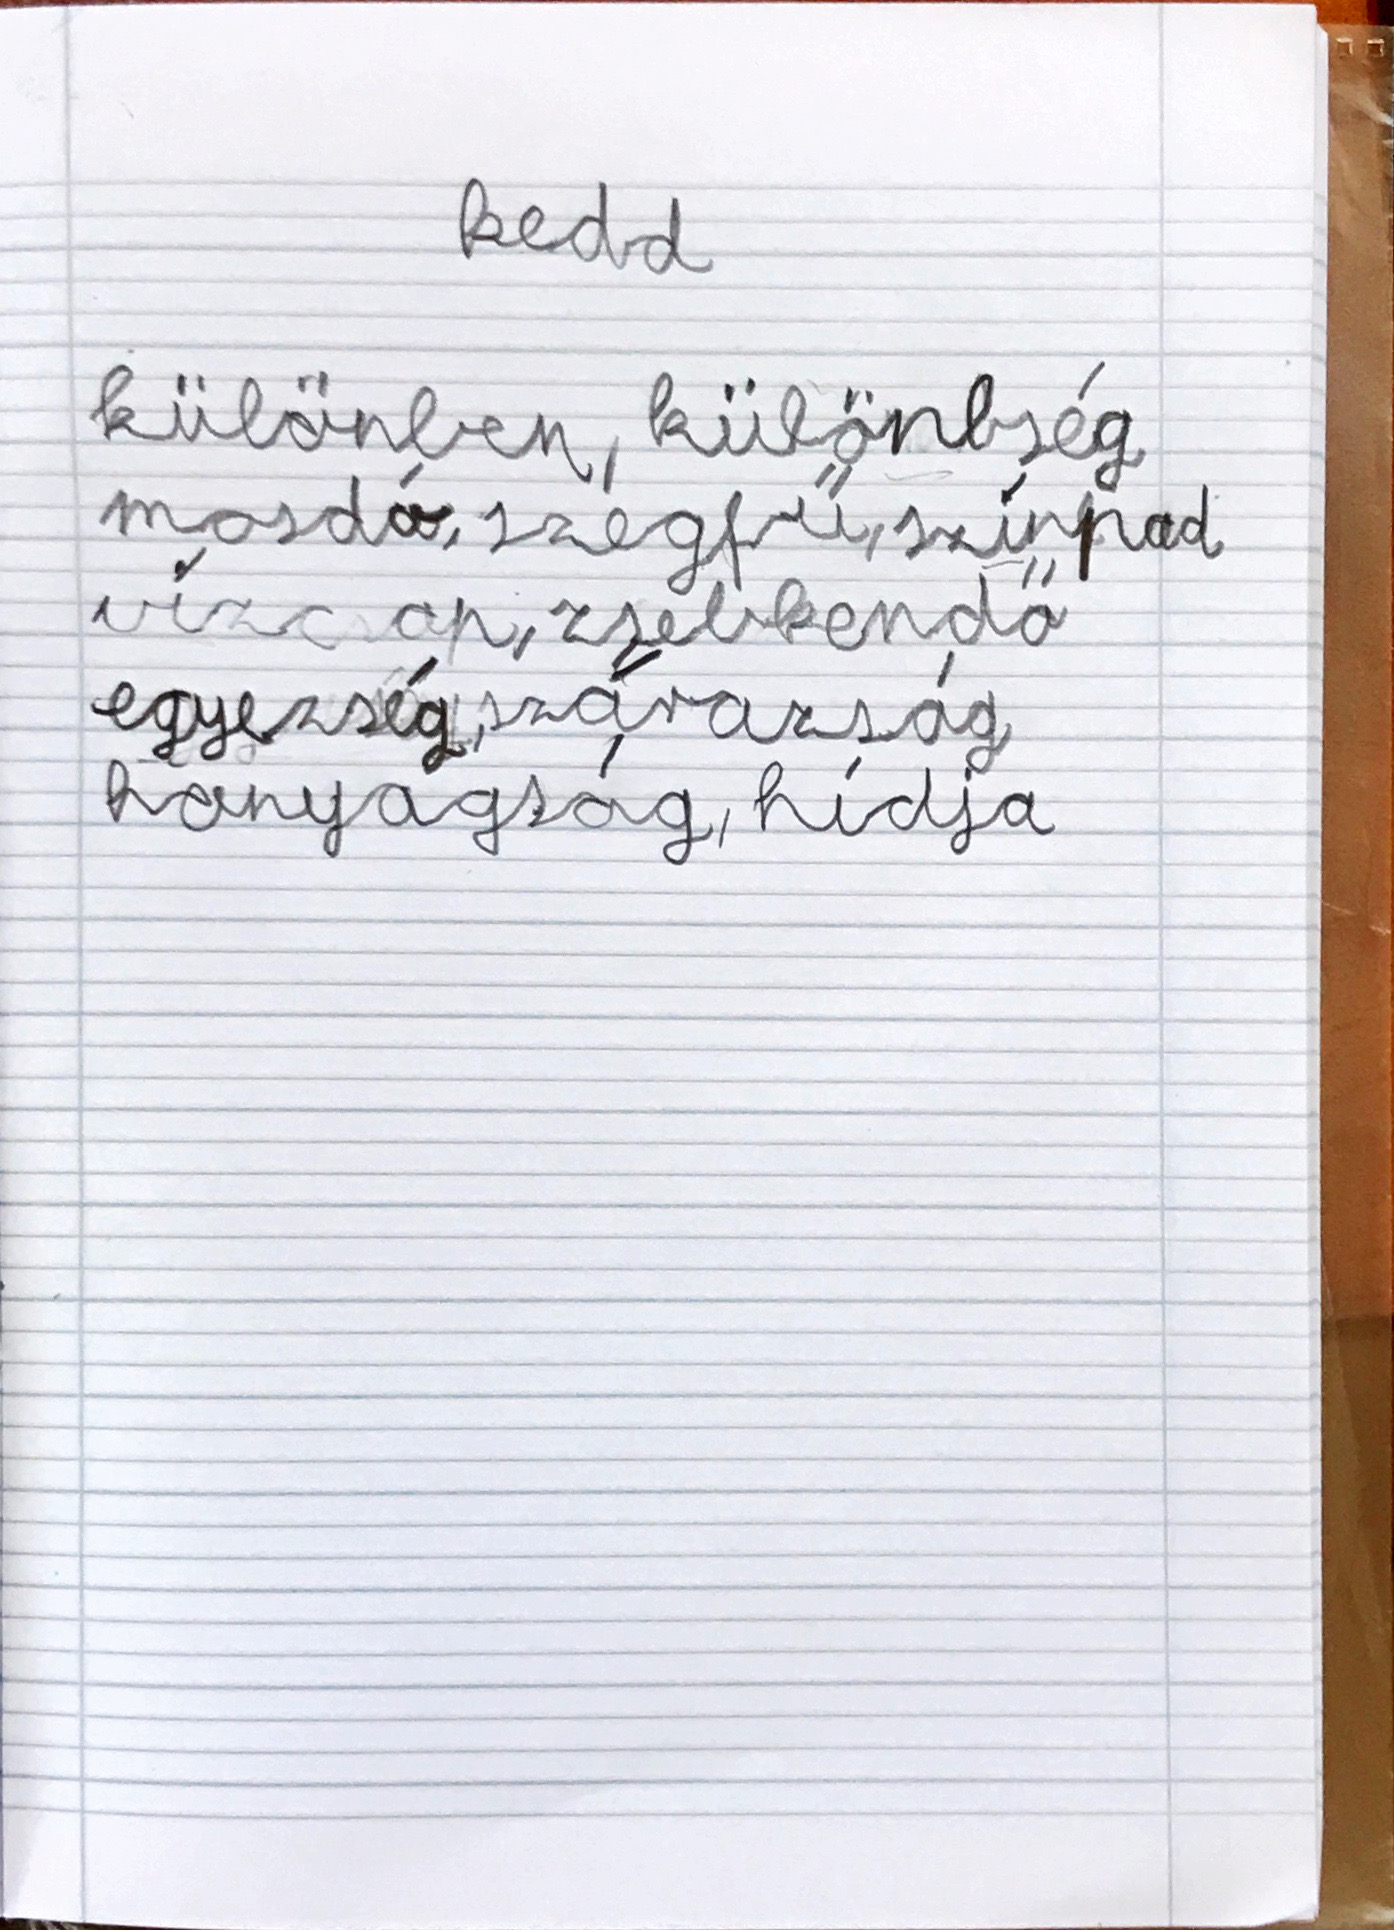 kedd
különben, különbség
mosdó, szegfű, színpad
vízcsap, zsebkendő
egyezség, szárazság
hanyagság, hídja